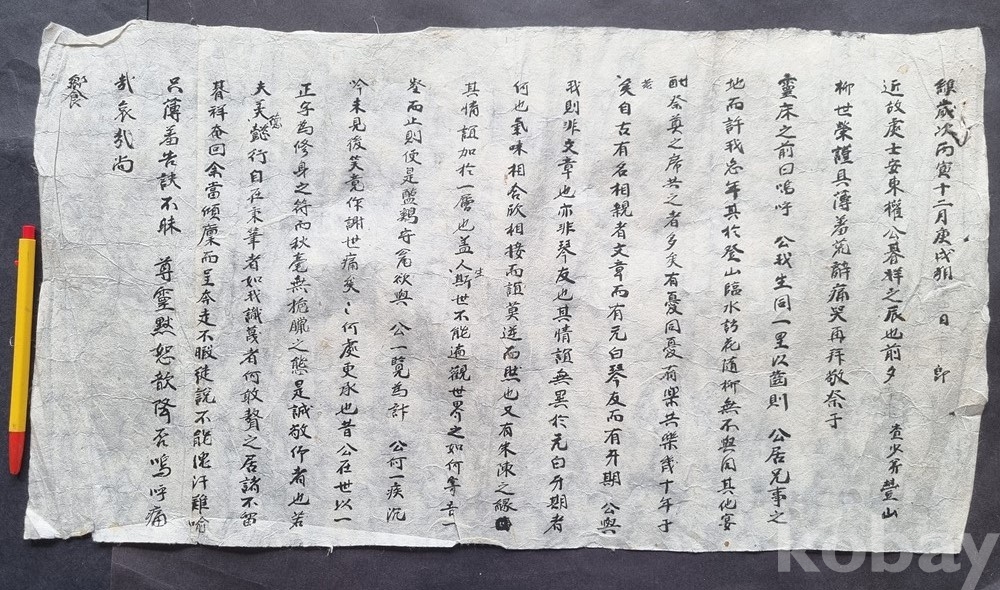 維歲次丙寅十二月庚戌朔 日 卽
近故處士安東權公朞祥之辰也前夕 査少弟豐山
柳世榮謹具薄羞荒辭痛哭再拜敬奈于
靈床之前曰嗚呼 公我生同一里以齒則 公居兄事之
地而許我忘年其於登山臨水訪花隨柳無不與同其他宴
酣奈奠之席共之者多矣有憂同憂有樂共樂幾十年于
茲矣自古有名相親者文章而有元白琴友而有牙期 公與
我則非文章也亦非琴友也其情誼無異於元白牙期者
何也氣味相合欣相接而誼莫逆而然也又有朱陳之緣
其情誼加於一層也盖人生斯世不能遍觀世界之如何等吾一
壑而止則便是 鷄守 欲與 公一覽為計 公何一疾沉
吟未見後笑竟作謝世痛矣〻何處更承也昔公在世以一
正字為修身之符而秋毫無 之態是誠敬仰者也若
夫美德懿行自在秉筆者如我識蔑者何敢贅之居諸不留
朞祥奄回余當傾廩而呈奔走不暇徒說不能 汗難喻
只薄羞告訣不昧 尊靈默恕歆降否嗚呼痛
哉哀哉尚
饗
kobay